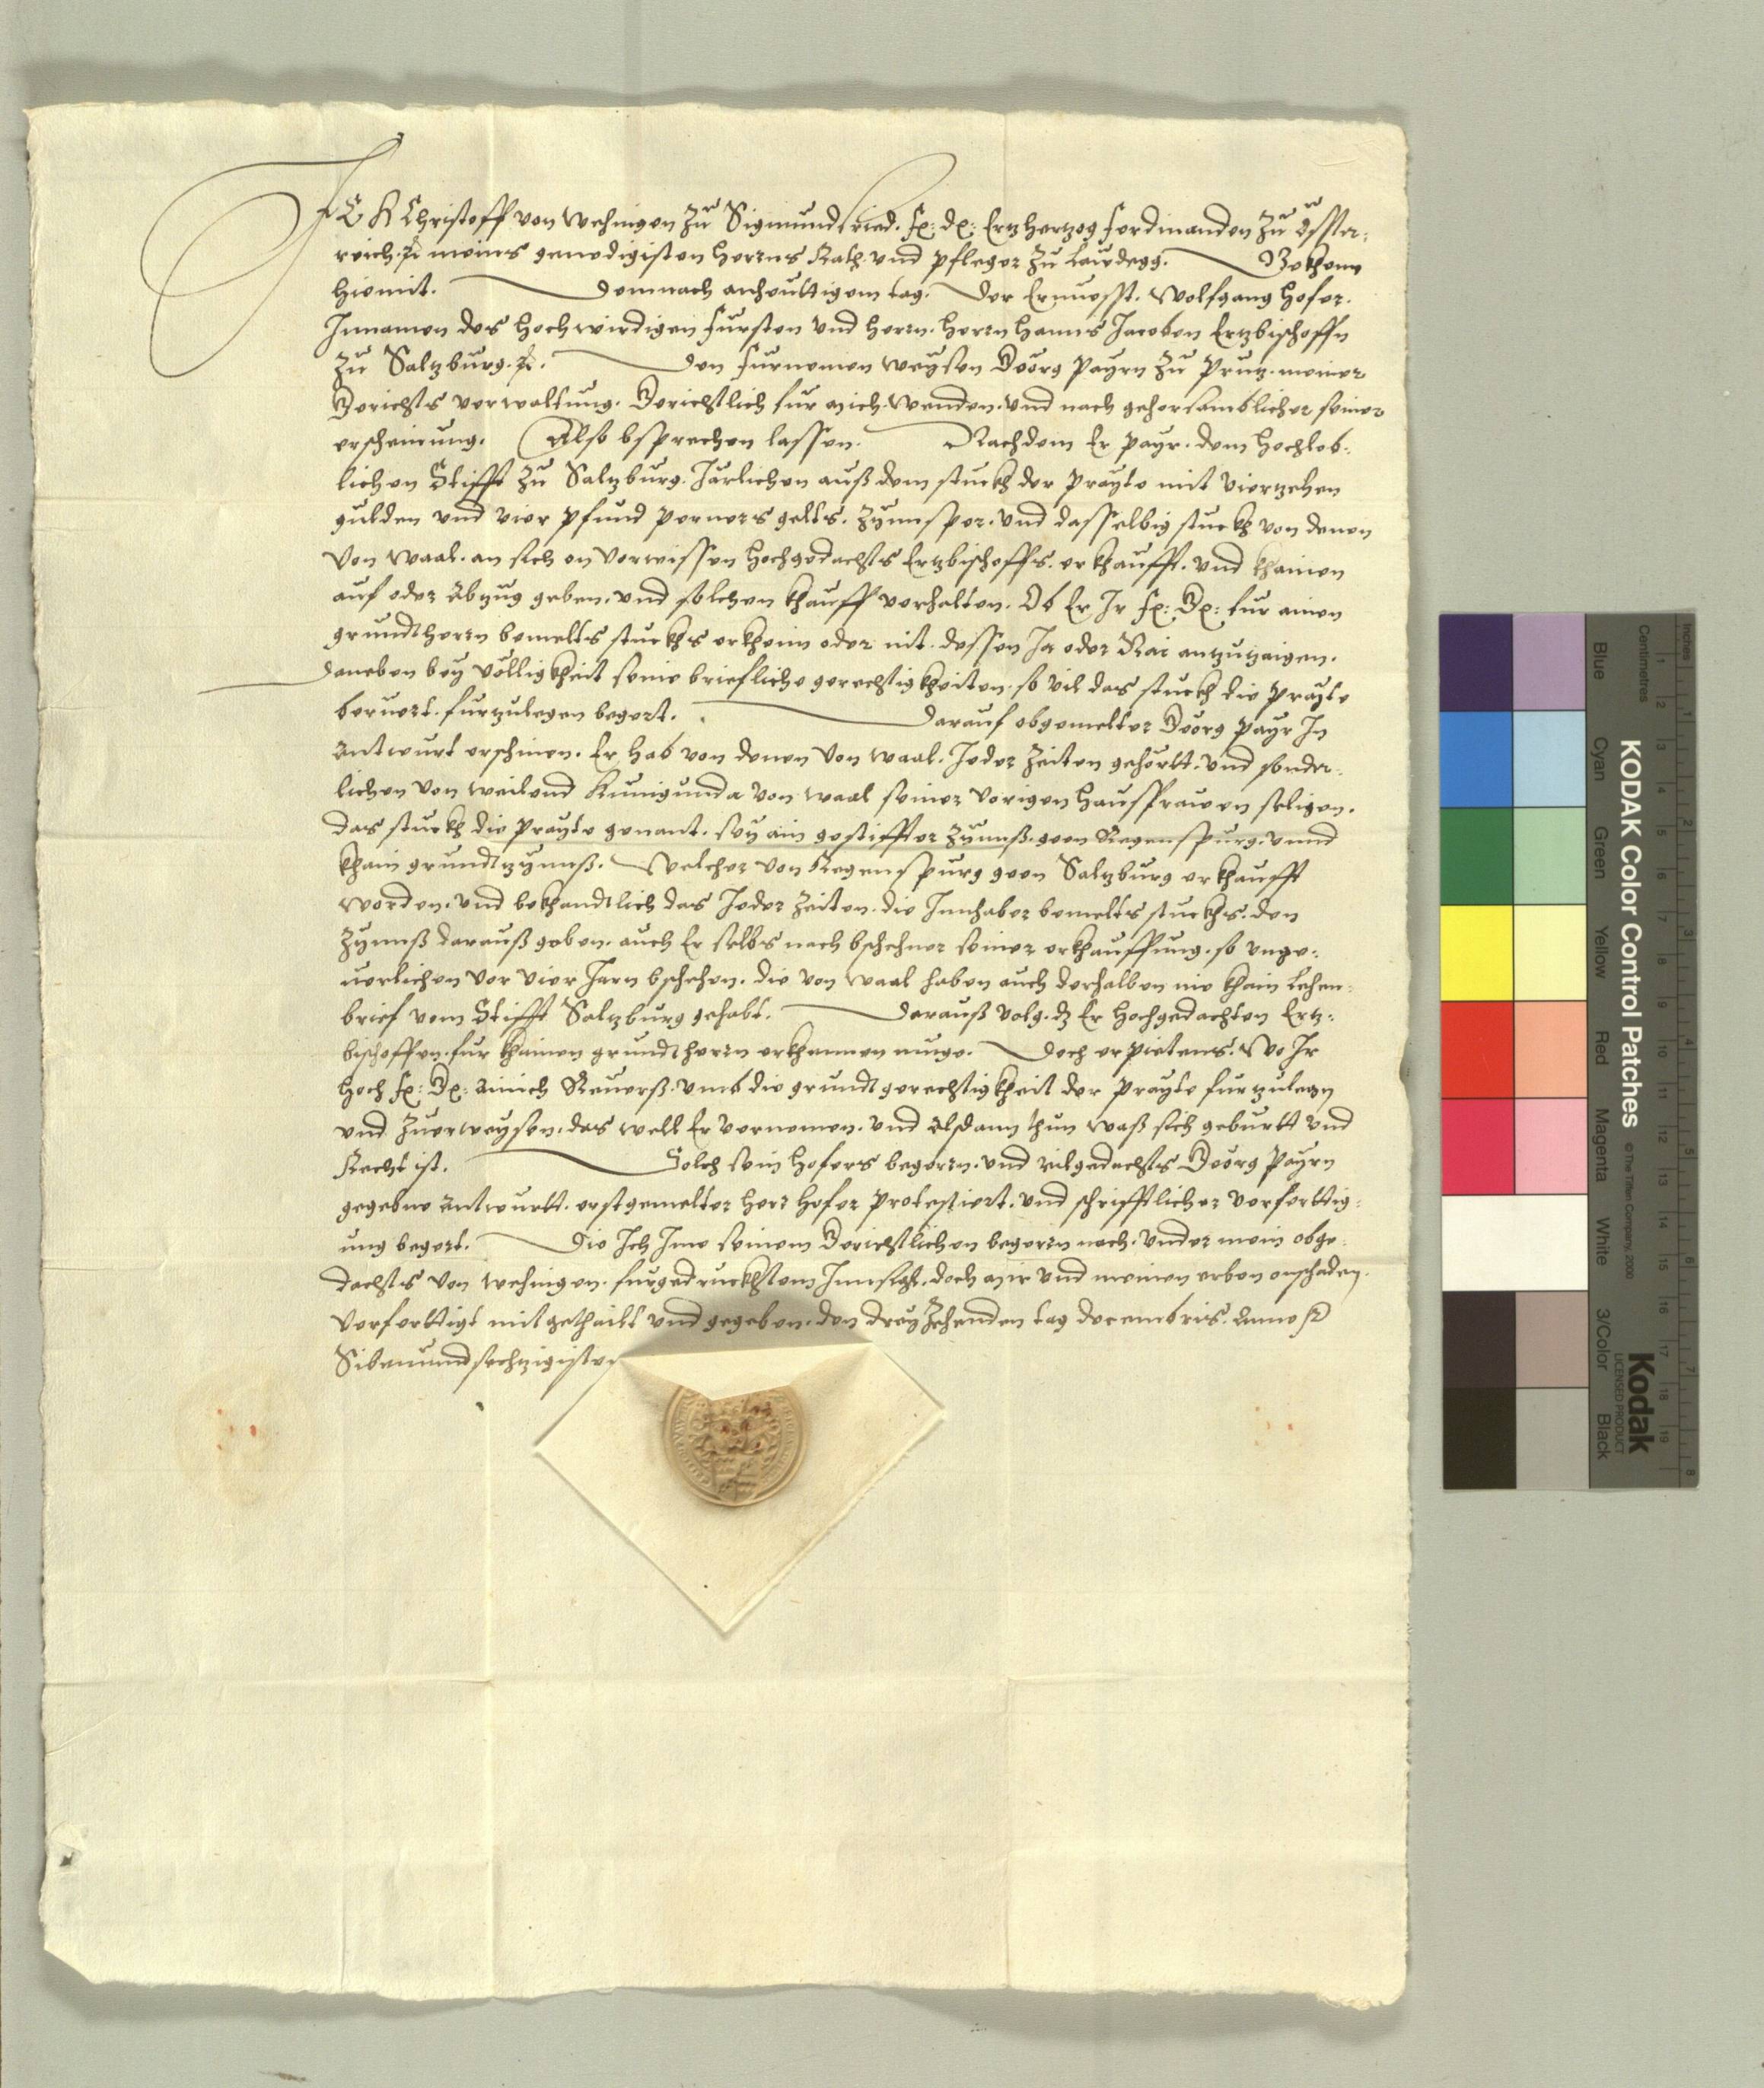 ICH Christoff von Wehingen zu Sigmundsried. fr: dr: Ertzhertzog Ferdinanden zu Össter:
reich. &c. meins genedigisten herrns Rath. und pfleger zu Laudegg. Bekhenn
hiemit. Demnach anheuttigem tag. der Ernuesst. Wolfgang Hofer.
Innamen des hochwirdigen Fursten und herrn. herrn Hanns Jacoben Ertzbischoffn
zu Salzburg. &c. den furnemen weysen Geörg Payrn zu Prutz. meiner
Gerichts verwaltung. Gerichtlich fur mich. wenden. und nach gehorsamblicher seiner
erscheinung. Also bsprechen lassen. Nachdem Er Payr. dem hochlob:
lichen Stifft zu Salzburg. Järlichen auß dem stuckh der Prayte mit vierzehen
gulden und vier pfund perners gelts. zynnsper. und dasselbig stuckh von denen
von Waal. an sich on vorwissen hochgedachts Ertzbischoffs. erkhaufft. und khainen
auf oder Abzug geben. und solchen khauff verhalten. Ob Er Ir fr: Gr: fur ainen
grundtherrn bemelts stuckhs erkhenn oder nit. dessen Ja oder Nai antzutzaigen.
daneben bey völligkheit seine briefliche gerechtigkheiten. so vil das stuckh die Prayte
beruert. furzulegen begert. Darauf obgemelter Geörg Payr In
Antwurt erschinen. Er hab von denen von Waal. Jeder zeiten gehörtt. und sonder:
lichen von weilend Kunigunda von Waal seiner vorigen haussfrauen seligen.
das stuckh die Prayte genant. sey ain gestiffter zynnß. geen Regenspurg. unnd
khain grundtzynnß. Welcher von Regenspurg geen Salzburg erkhaufft
worden. und bekhandtlich das Jeder zeiten. die Innhaber bemelts stuckhs. den
zynnß darauß geben. auch Er selbs nach bschehner seiner erkhauffung. so unge:
uerlichen vor vier Jarn bschehen. die von Waal haben auch derhalben nie khain Lehen:
brief vom Stifft Salzburg gehabt. darauß volg. dz Er hochgedachten Ertz:
bischoffen. fur khainen grundtherrn erkhennen muge. Doch erpietens. Wo Ir
hoch fr: Gr: ainich Reuerß. umb die grundtgerechtigkheit der Prayte furzulegn
und zuerweysen. das well Er vernemen. und alsdann thun waß sich geburtt und
Recht ist. Solch sein Hofers begern. und vilgedachts Geörg Payrn
gegebne antwurtt. erstgemelter herr Hofer Protestiert. und schrifftlicher verferttig:
ung begert. Die Ich Ime seinem Gerichtlichen begern nach. under mein obge:
dachts von Wehingen. furgedruckhtem Innsigl. doch mir und meinen erben onschaden.
Verferttigt mitgethailt und gegeben. den dreyzehenden tag decembris. Anno &c.
Sibenundsechzigisten
KODAK Color Control Patches
© The Tiffen Company, 2000
Kodak
LICENSED PRODUCT
Inches
Centimetres
Blue
Cyan
Green
Yellow
Red
Magenta
White
3/Color
Black
1 2 3 4 5 6 7 8 9 10 11 12 13 14 15 16 17 18 19
1 2 3 4 5 6 7 8